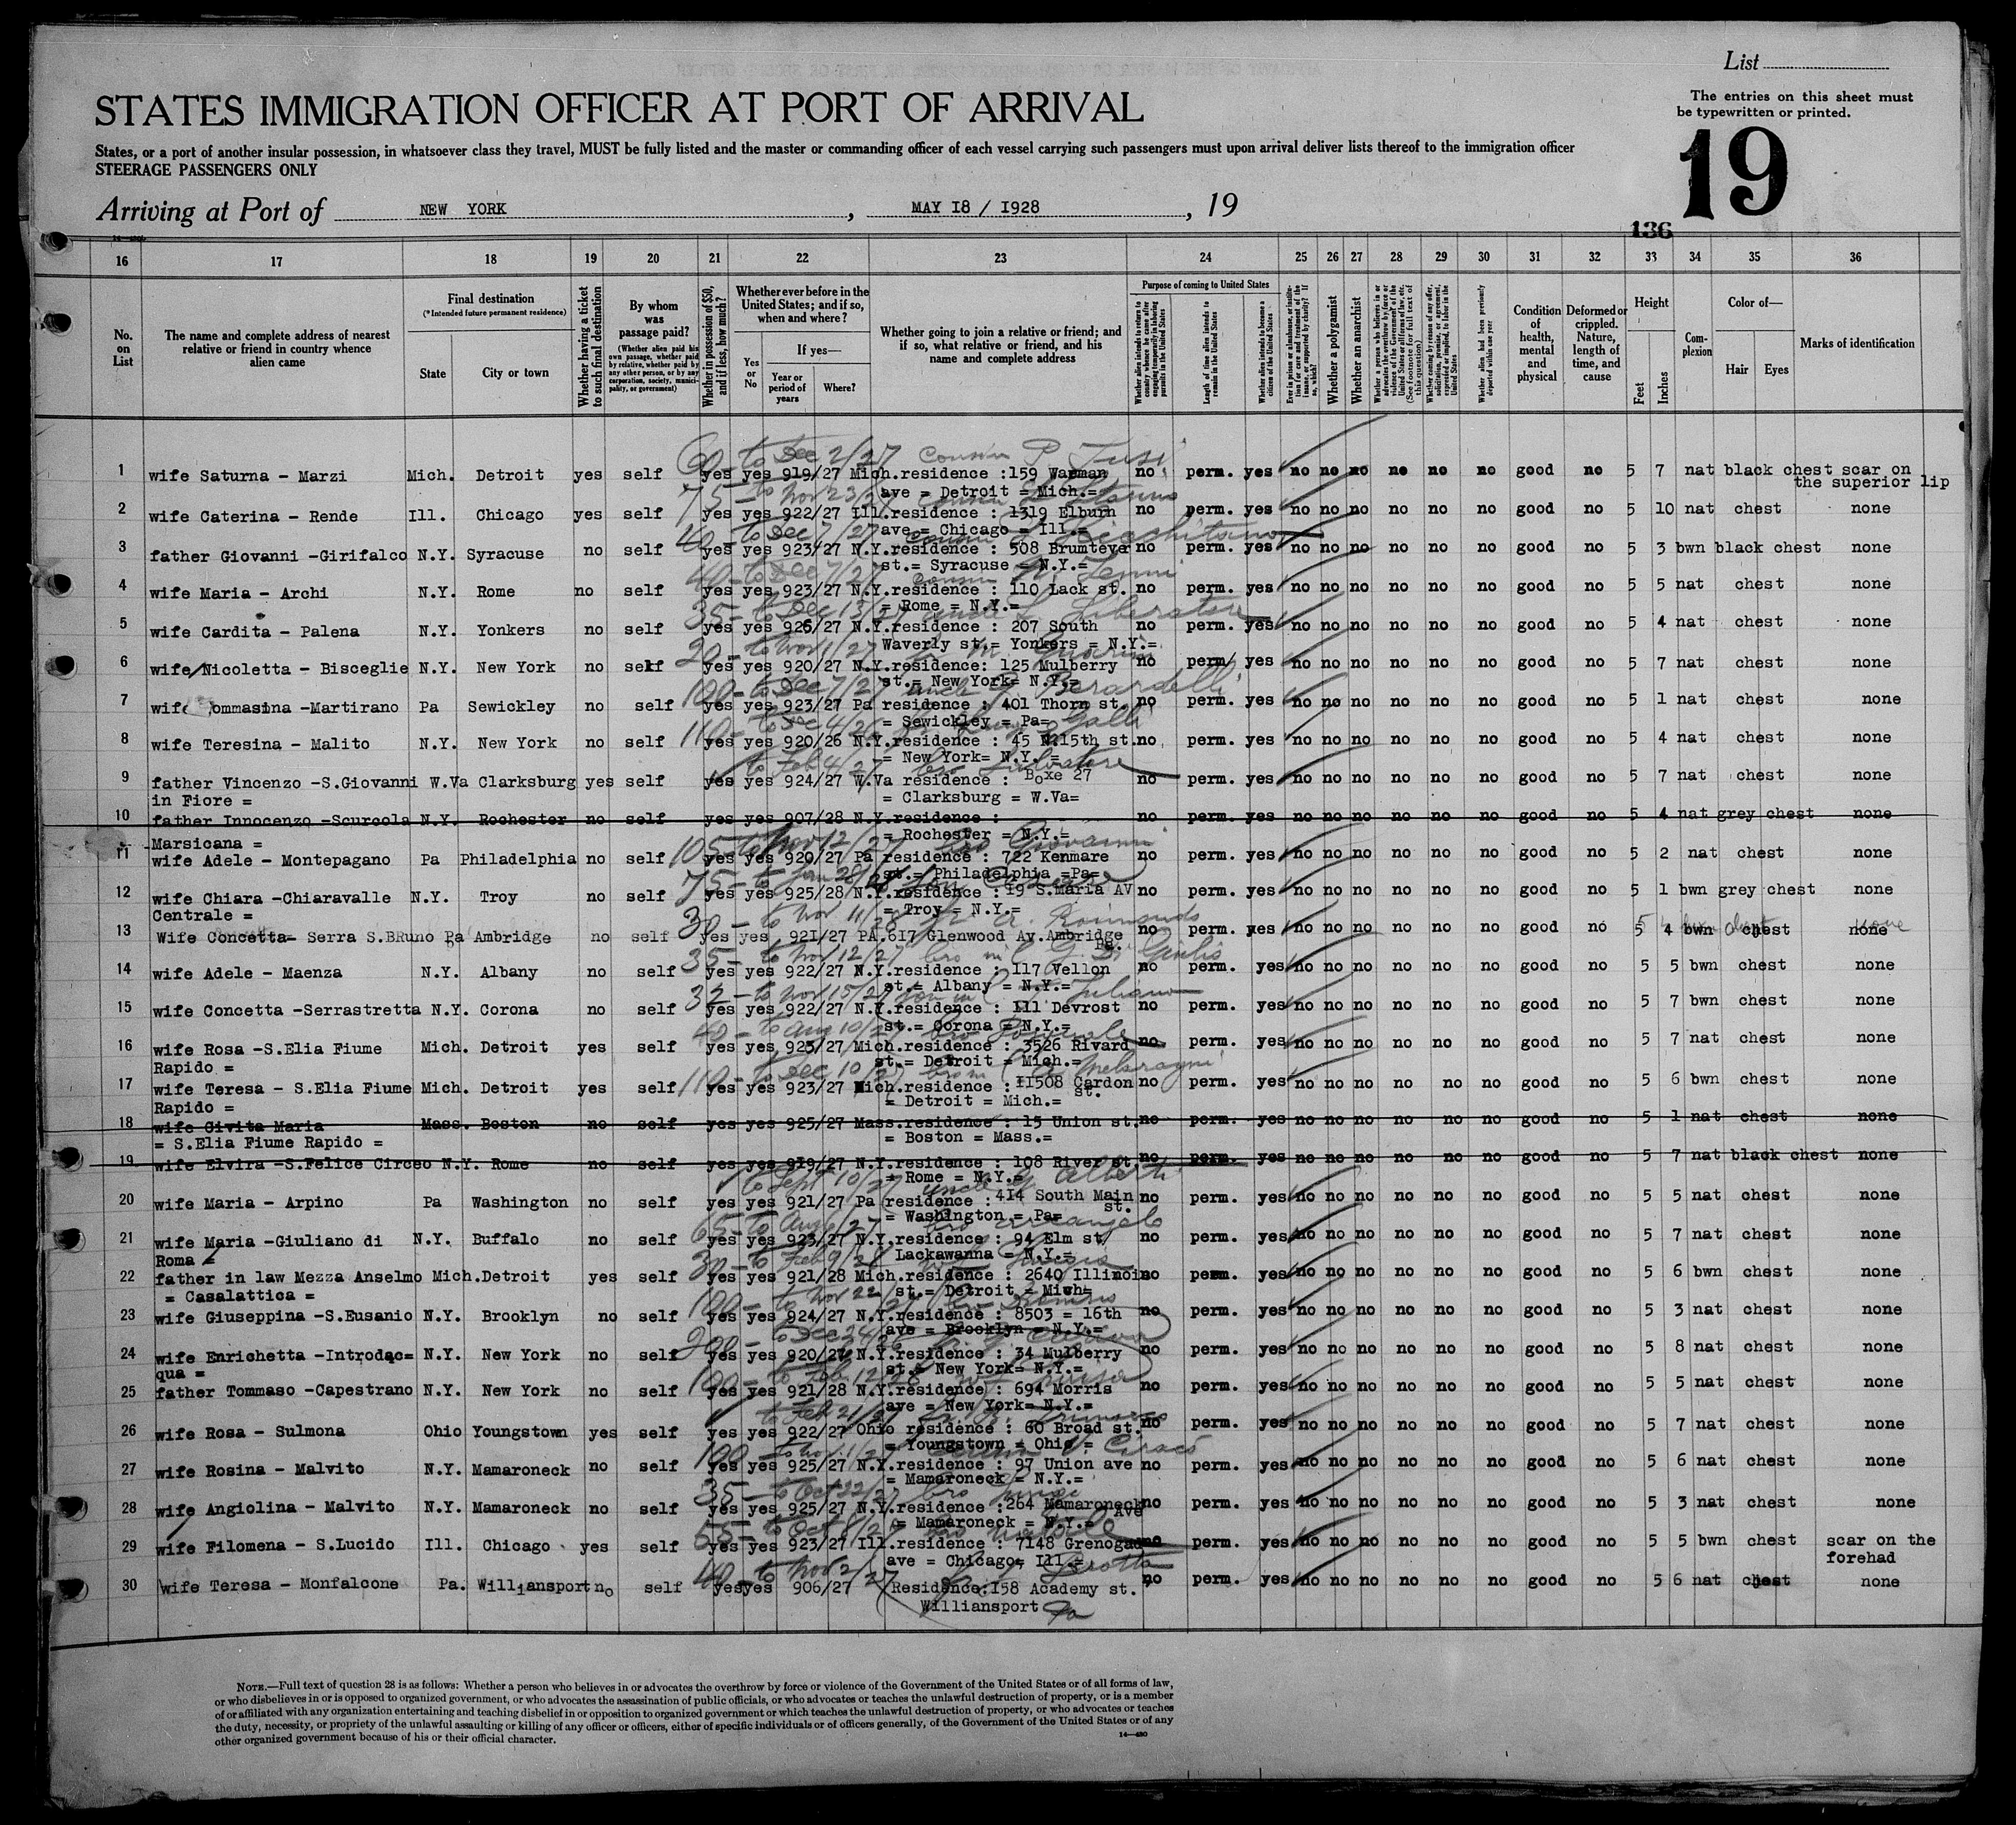 List
The entries on this sheet must
be typewritten or printed.
STATES IMMIGRATION OFFICER AT PORT OF ARRIVAL
19
States, or a port of another insular possession, in whatsoever class they travel, MUST be fully listed and the master or commanding officer of each vessel carrying such passengers must upon arrival deliver lists thereof to the immigration officer
STEERAGE PASSENGERS ONLY
Arriving at Port of NEW YORK, MAY 18 / 1928, 19
136
16 17 18 19 20 21 22 23 24 25 26 27 28 29 30 31 32 33 34 35 36
No. on List
The name and complete address of nearest relative or friend in country whence alien came
Final destination
(*Intended future permanent residence)
State
City or town
Whether having a ticket to such final destination
By whom was passage paid?
(Whether alien paid his own passage, whether paid by relative, whether paid by any other person, or by any corporation, society, municipality, or government)
Whether in possession of $50, and if less, how much?
Whether ever before in the United States; and if so, when and where?
Yes or No
If yes—
Year or period of years
Where?
Whether going to join a relative or friend; and if so, what relative or friend, and his name and complete address
Purpose of coming to United States
Length of time alien intends to remain in the United States
Whether alien intends to become a citizen of the United States
Whether a polygamist
Whether an anarchist
Whether alien had been previously deported within one year
Condition of health, mental and physical
Deformed or crippled. Nature, length of time, and cause
Height
Feet
Inches
Complexion
Color of—
Hair
Eyes
Marks of identification
60 - to Dec 2/27 cousin P.
1 wife Saturna - Marzi Mich. Detroit yes self yes yes 919/27 Mich.residence :159 Warman no perm. yes no no no no no no good no 5 7 nat black chest scar on
ave = Detroit = Mich.= the superior lip
75 - to Nov 23/27
2 wife Caterina - Rende Ill. Chicago yes self yes yes 922/27 Ill.residence : 1319 Elburn no perm. yes no no no no no no good no 5 10 nat chest none
ave = Chicago = Ill.=
40 - to Dec 7/27 cousin
3 father Giovanni -Girifalco N.Y. Syracuse no self yes yes 923/27 N.Y.residence : 508 Brumteye no perm. yes no no no no no no good no 5 3 bwn black chest none
st.= Syracuse = N.Y.=
40 - to Dec 7/27 cousin
4 wife Maria - Archi N.Y. Rome no self yes yes 923/27 N.Y.residence : 110 Lack st. no perm. yes no no no no no no good no 5 5 nat chest none
= Rome = N.Y.=
35 - to Dec 13/27 uncle L. Liberatore
5 wife Cardita - Palena N.Y. Yonkers no self yes yes 926/27 N.Y.residence : 207 South no perm. yes no no no no no no good no 5 4 nat chest none
Waverly st.= Yonkers = N.Y.=
20 - to Nov 1/27
6 wife Nicoletta - Bisceglie N.Y. New York no self yes yes 920/27 N.Y.residence: 125 Mulberry no perm/ yes no no no no no no good no 5 7 nat chest none
st.= New York= N.Y.=
100 - to Dec 7/27 uncle G. Berardelli
7 wife Tommasina -Martirano Pa Sewickley no self yes yes 923/27 Pa residence : 401 Thorn st. no perm. yes no no no no no no good no 5 1 nat chest none
= Sewickley = Pa=
110 - to Dec 4/26 Galli
8 wife Teresina - Malito N.Y. New York no self yes yes 920/26 N.Y.residence : 45 N.15th st. no perm. yes no no no no no no good no 5 4 nat chest none
= New York= N.Y. =
to Feb 4/27 bro Salvatore
9 father Vincenzo -S.Giovanni W.Va Clarksburg yes self yes yes 924/27 W.Va residence : Boxe 27 no perm. yes no no no no no no good no 5 7 nat chest none
in Fiore = = Clarksburg = W.Va=
10 father Innocenzo -Scurcola N.Y. Rochester no self yes yes 907/28 N.Y.residence : no perm. yes no no no no no no good no 5 4 nat grey chest none
Marsicana = = Rochester = N.Y.=
105 - to Nov 12/27 bro Giovanni
11 wife Adele - Montepagano Pa Philadelphia no self yes yes 920/27 Pa residence : 722 Kenmare no perm. yes no no no no no no good no 5 2 nat chest none
st.= Philadelphia =Pa=
75 - to Jan
12 wife Chiara -Chiaravalle N.Y. Troy no self yes yes 925/28 N.Y.residence : 19 S.Maria AV no perm. yes no no no no no no good no 5 1 bwn grey chest none
Centrale = = Troy = N.Y.=
30 - to Nov 11/28
13 Wife Concetta- Serra S.BRuno Pa Ambridge no self yes yes 921/27 PA.617 Glenwood Av.Ambridge no perm. yes no no no no no no good no 5 4 bwn chest none
Pa.
35 - to Nov 12/27 bro in l
14 wife Adele - Maenza N.Y. Albany no self yes yes 922/27 N.Y.residence : 117 Vellon no perm. yes no no no no no no good no 5 5 bwn chest none
st.= Albany = N.Y.=
32 - to Nov 15/27 Juliano
15 wife Concetta -Serrastretta N.Y. Corona no self yes yes 922/27 N.Y.residence : 111 Devrost no perm. yes no no no no no no good no 5 7 bwn chest none
st.= Corona = N.Y.=
40 - to Aug 10/27 bro Pasquale
16 wife Rosa -S.Elia Fiume Mich. Detroit yes self yes yes 923/27 Mich.residence : 3526 Rivard no perm. yes no no no no no no good no 5 7 nat chest none
Rapido = st.= Detroit = Mich.=
110 - to Dec 10/27
17 wife Teresa - S.Elia Fiume Mich. Detroit yes self yes yes 923/27 Mich.residence : 11508 Cardon no perm. yes no no no no no no good no 5 6 bwn chest none
Rapido = st.
= Detroit = Mich.=
18 wife Civita Maria Mass. Boston no self yes yes 925/27 Mass.residence : 15 Union st. no perm. yes no no no no no no good no 5 1 nat chest none
= S.Elia Fiume Rapido = = Boston = Mass.=
19 wife Elvira -S.Felice Circeo N.Y. Rome no self yes yes 919/27 N.Y.residence : 108 River st. no perm. yes no no no no no no good no 5 7 nat black chest none
= Rome = N.Y.=
to Sept 10/27 uncle G. Alberti
20 wife Maria - Arpino Pa Washington no self yes yes 921/27 Pa residence : 414 South Main no perm. yes no no no no no no good no 5 5 nat chest none
st.
= Washington = Pa=
65 - to Aug 6/27 bro Arcangelo
21 wife Maria -Giuliano di N.Y. Buffalo no self yes yes 923/27 N.Y.residence : 94 Elm st no perm. yes no no no no no no good no 5 7 nat chest none
Roma = Lackawanna = N.Y.=
30 - to Feb 9/28
22 father in law Mezza Anselmo Mich.Detroit yes self yes yes 921/28 Mich.residence : 2640 Illinois no perm. yes no no no no no no good no 5 6 bwn chest none
= Casalattica = st.= Detroit = Mich=
100 - to Nov 22
23 wife Giuseppina -S.Eusanio N.Y. Brooklyn no self yes yes 924/27 N.Y.residence : 8503 = 16th no perm. yes no no no no no no good no 5 3 nat chest none
ave = Brooklyn = N.Y.=
200 - to Dec 24
24 wife Enrichetta -Introdac= N.Y. New York no self yes yes 920/26 N.Y.residence : 34 Mulberry no perm. yes no no no no no no good no 5 8 nat chest none
qua = st.= New York= N.Y.=
100 - to Feb 12/28
25 father Tommaso -Capestrano N.Y. New York no self yes yes 921/28 N.Y.residence : 694 Morris no perm. yes no no no no no no good no 5 5 nat chest none
ave = New York= N.Y.=
to Feb 21/27
26 wife Rosa - Sulmona Ohio Youngstown yes self yes yes 922/27 Ohio residence : 60 Broad st. no perm. yes no no no no no no good no 5 7 nat chest none
= Youngstown = Ohio =
100 - to Nov 1/27
27 wife Rosina - Malvito N.Y. Mamaroneck no self yes yes 925/27 N.Y.residence : 97 Union ave no perm. yes no no no no no no good no 5 6 nat chest none
= Mamaroneck = N.Y.=
35 - to Oct 22/27 bro
28 wife Angiolina - Malvito N.Y. Mamaroneck no self yes yes 925/27 N.Y.residence :264 Mamaroneck no perm. yes no no no no no no good no 5 3 nat chest none
Ave
= Mamaroneck = N.Y.=
55 - to Oct 8/27 bro
29 wife Filomena - S.Lucido Ill. Chicago yes self yes yes 923/27 Ill.residence : 7148 Grenogad no perm. yes no no no no no no good no 5 5 bwn chest scar on the
ave = Chicago= Ill.= forehad
40 - to Nov 2/27
30 wife Teresa - Monfalcone Pa. Williansport no self yes yes 906/27 Residence:158 Academy st. no perm. yes no no no no no no good no 5 6 nat chest none
Williansport Pa
NOTE.—Full text of question 28 is as follows: Whether a person who believes in or advocates the overthrow by force or violence of the Government of the United States or of all forms of law,
or who disbelieves in or is opposed to organized government, or who advocates the assassination of public officials, or who advocates or teaches the unlawful destruction of property, or is a member
of or affiliated with any organization entertaining and teaching disbelief in or opposition to organized government or which teaches the unlawful destruction of property, or who advocates or teaches
the duty, necessity, or propriety of the unlawful assaulting or killing of any officer or officers, either of specific individuals or of officers generally, of the Government of the United States or of any
other organized government because of his or their official character.
14—430